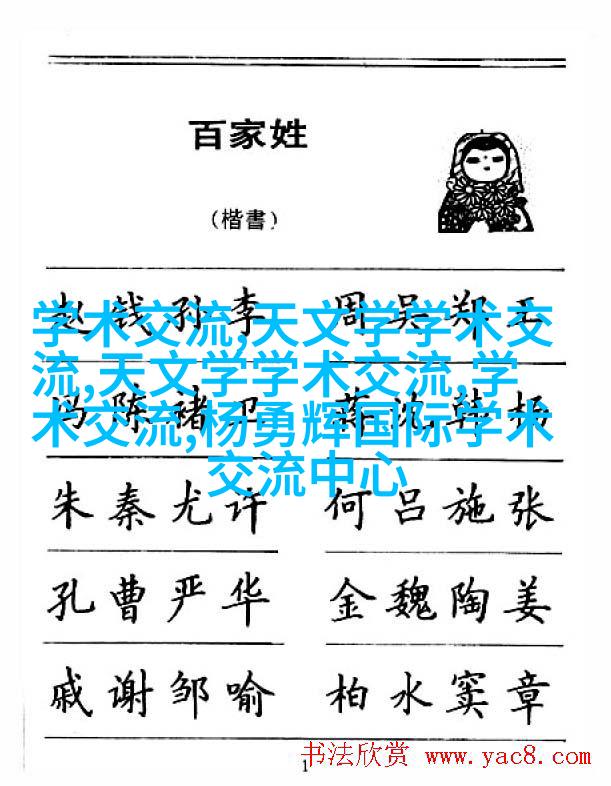 百家姓
(楷書)
赵钱孙李 周吴郑王
学术交流,天文学学术交
流,天文学学术交流,学
术交流,杨勇辉国际学术
交流中心
冯陈褚卫 蒋沈韩杨
朱秦尤许 何吕施张
孔曹严华 金魏陶姜
戚谢邹喻 柏水窦章
1
书法欣赏 www.yac8.com